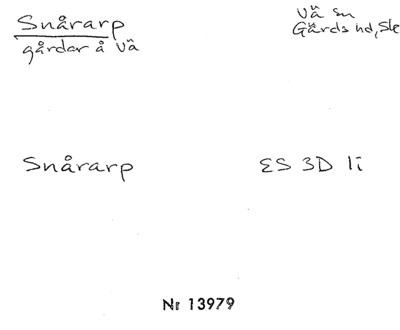 Snårarp
gårdar å Vä
Vä sn
Gärds hd, Sk
Snårarp
ES 3D 1i
Nr 13979